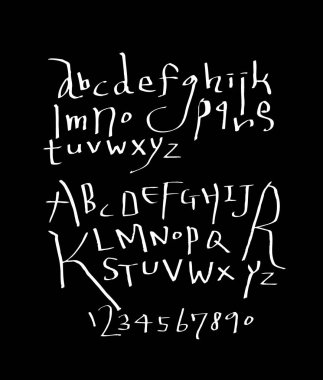 abcdefghijk
lmnopqrs
tuvwxyz
ABCDEFGHIJ
KLMNOPQR
STUVWXYZ
1234567890